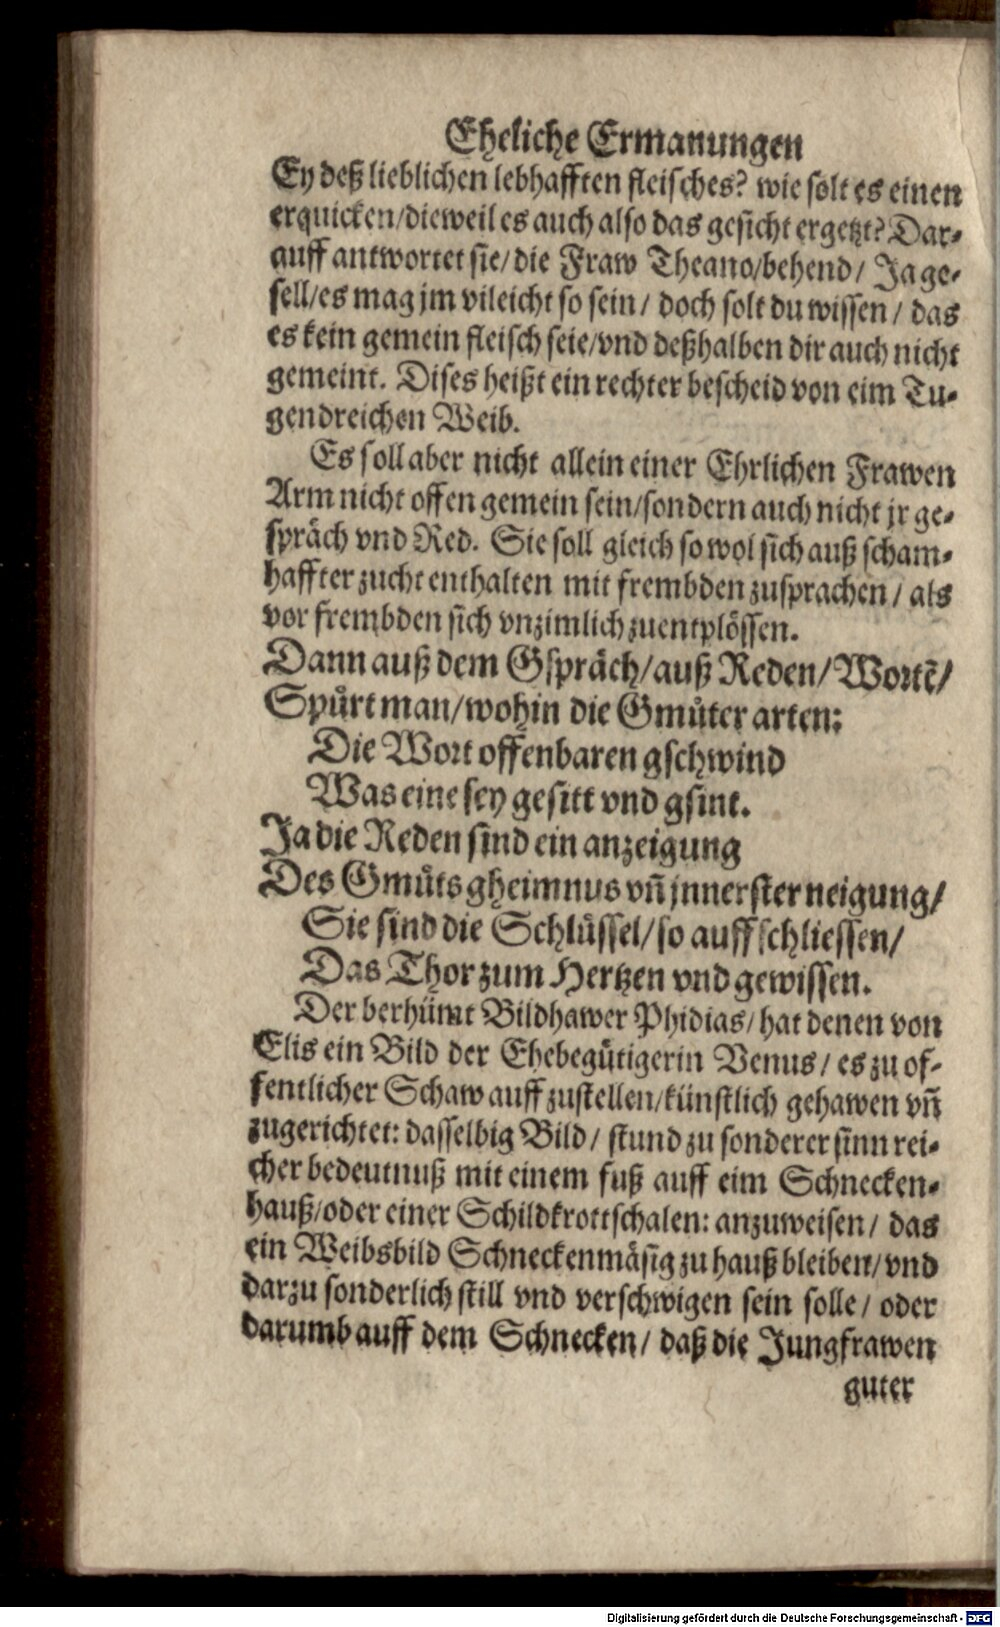 Eheliche Ermanungen
Ey deß lieblichen lebhafften fleisches? wie solt es einen
erquicken/dieweil es auch also das gesicht ergetzt? Dar-
auff antwortet sie/die Fraw Theano/behend/ Ja ge-
sell/es mag jm vileicht so sein/ doch solt du wissen/ das
es kein gemein fleisch seie/vnd deßhalben dir auch nicht
gemeint. Dises heißt ein rechter bescheid von eim Tu-
gendreichen Weib.
Es soll aber nicht allein einer Ehrlichen Frawen
Arm nicht offen gemein sein/sondern auch nicht jr ge-
spräch vnd Red. Sie soll gleich so wol sich auß scham-
haffter zucht enthalten mit frembden zusprachen/ als
vor frembden sich vnzimlich zuentplössen.
Dann auß dem Gspräch/auß Reden/Wortē/
Spürt man/wohin die Gmüter arten:
Die Wort offenbaren gschwind
Was eine sey gesitt vnd gsint.
Ja die Reden sind ein anzeigung
Des Gmüts gheimnus vñ jnnerster neigung/
Sie sind die Schlüssel/so auffschliessen/
Das Thor zum Hertzen vnd gewissen.
Der berhümt Bildhawer Phidias/hat denen von
Elis ein Bild der Ehebegütigerin Venus/ es zu of-
fentlicher Schaw auffzustellen/künstlich gehawen vñ
zugerichtet: dasselbig Bild/ stund zu sonderer sinnrei-
cher bedeutnuß mit einem fuß auff eim Schnecken-
hauß/oder einer Schildkrottschalen: anzuweisen/ das
ein Weibsbild Schneckenmäsig zu hauß bleiben/vnd
darzu sonderlich still vnd verschwigen sein solle/ oder
darumb auff dem Schnecken/ daß die Jungfrawen
guter
Digitalisierung gefördert durch die Deutsche Forschungsgemeinschaft - DFG